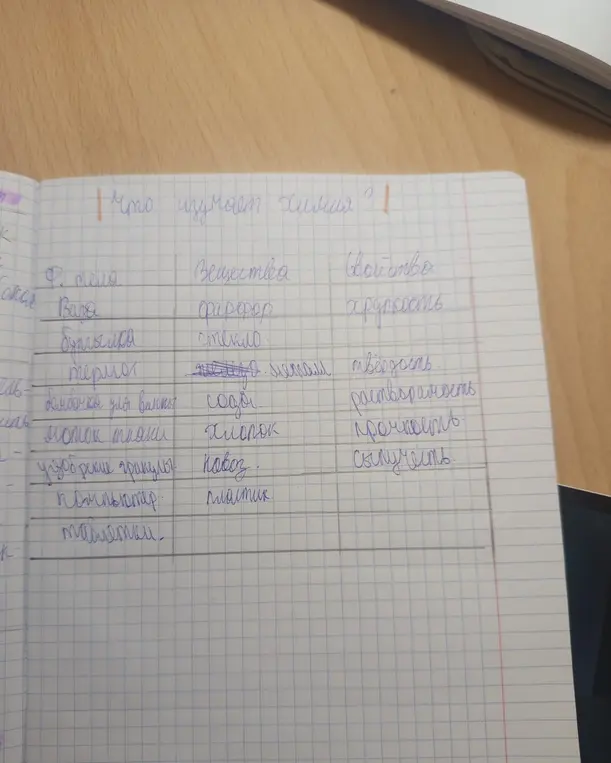 Что изучает химия?
Ф. тела Вещества Свойства
Ваза фарфор хрупкость
бутылка стекло
термос метал твёрдость
бомбочка для ванны сода растворимость
моток ткани хлопок прочность
удобрения гранулы навоз. сыпучесть
компьютер пластик
таблетки.